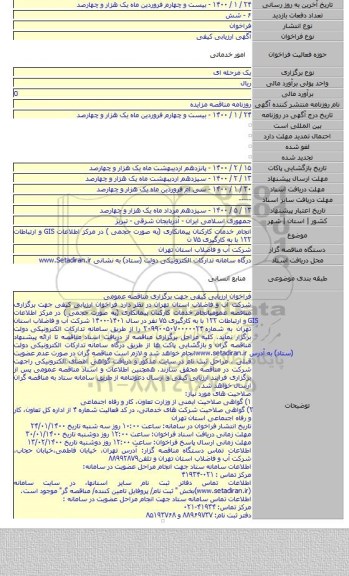 تاریخ آخرین به روز رسانی ۲۴ / ۱ / ۱۴۰۰ - بیست و چهارم فروردین ماه یک هزار و چهارصد
تعداد دفعات بازدید ۶ - شش
نوع انتشار فراخوان
نوع فراخوان آگهی ارزیابی کیفی
حوزه فعالیت فراخوان امور خدماتی
نوع برگزاری یک مرحله ای
واحد پولی برآورد مالی ریال
برآورد مالی 0
نام روزنامه منتشر کننده آگهی روزنامه مناقصه مزایده
تاریخ درج آگهی در روزنامه ۲۴ / ۱ / ۱۴۰۰ - بیست و چهارم فروردین ماه یک هزار و چهارصد
بین المللی است
احتمال تمدید مهلت دارد
لغو شده
تجدید شده
تاریخ بازگشایی پاکات ۱۵ / ۲ / ۱۴۰۰ - پانزدهم اردیبهشت ماه یک هزار و چهارصد
مهلت ارسال پیشنهاد ۱۳ / ۲ / ۱۴۰۰ - سیزدهم اردیبهشت ماه یک هزار و چهارصد
مهلت دریافت اسناد ۳۰ / ۱ / ۱۴۰۰ - سی ام فروردین ماه یک هزار و چهارصد
مهلت دریافت سایر اسناد
تاریخ اعتبار پیشنهاد ۱۳ / ۵ / ۱۴۰۰ - سیزدهم مرداد ماه یک هزار و چهارصد
کشور | استان | شهر جمهوری اسلامی ایران - آذربایجان شرقی - تبریز
موضوع انجام خدمات کارکنان پیمانکاری (به صورت حجمی ) در مرکز اطلاعات GIS و ارتباطات ۱۲۲ با به کارگیری ۷۵ ن
دستگاه مناقصه گزار شرکت آب و فاضلاب استان تهران
محل دریافت اسناد درگاه سامانه تدارکات الکترونیکی دولت (ستاد) به نشانی www.Setadiran.ir
طبقه بندی موضوعی منابع انسانی
توضیحات
فراخوان ارزیابی کیفی جهت برگزاری مناقصه عمومی
شرکت آب و فاضلاب استان تهران در نظر دارد فراخوان ارزیابی کیفی جهت برگزاری
مناقصه عمومی انجام خدمات کارکنان پیمانکاری (به صورت حجمی ) در مرکز اطلاعات
GIS و ارتباطات ۱۲۲ با به کارگیری ۷۵ نفر در سال ۱۴۰۱-۱۴۰۰ شرکت آب و فاضلاب استان
تهران به شماره را از طریق سامانه تدارکات الکترونیکی دولت
برگزار نماید. کلیه مراحل برگزاری مناقصه از دریافت اسناد مناقصه تا ارائه پیشنهاد
مناقصه گران و بازگشایی پاکت ها از طریق درگاه سامانه تدارکات الکترونیکی دولت
(ستاد) به آدرس www.setadiran.ir انجام خواهد شد و لازم است مناقصه گران در صورت عدم عضویت
قبلی ، مراحل ثبت نام در سایت مذکور و دریافت گواهی امضای الکترونیکی را جهت
شرکت در مناقصه محقق سازند. همچنین اطلاعات و اسناد مناقصه عمومی پس از
برگزاری فرایند ارزیابی کیفی و ارسال دعوتنامه از طریق سامانه ستاد به مناقصه گران
ارسال خواهد شد.
صلاحیت های مورد نیاز:
۱) گواهی صلاحیت ایمنی از وزارت تعاون، کار و رفاه اجتماعی
۲) گواهی صلاحیت شرکت های خدماتی، در کد فعالیت شماره ۴ از اداره کل تعاون، کار
و رفاه اجتماعی استان تهران
تاریخ انتشار فراخوان در سامانه: ساعت ۱۰:۰۰ روز سه شنبه تاریخ ۲۴/۰۱/۱۴۰۰
مهلت زمانی دریافت اسناد فراخوان: ساعت ۱۲:۰۰ روز دوشنبه تاریخ ۳۰/۰۱/۱۴۰۰
مهلت زمانی ارسال پاسخ فراخوان: ساعت ۱۲:۰۰ روز دوشنبه تاریخ ۱۳/۰۲/۱۴۰۰
اطلاعات تماس دستگاه مناقصه گزار: آدرس تهران، خیابان فاطمی،خیابان حجاب،
شرکت آب و فاضلاب استان تهران و تلفن
اطلاعات سامانه ستاد جهت انجام مراحل عضویت در سامانه:
مرکز تماس : ۰۲۱-۴۱۹۳۴
اطلاعات تماس دفاتر ثبت نام سایر استانها، در سایت سامانه
(www.setadiran.ir)بخش " ثبت نام/ پروفایل تامین کننده/ مناقصه گر" موجود است.
اطلاعات تماس سامانه ستاد جهت انجام مراحل عضویت در سامانه :
مرکز تماس: ۴۱۹۳۴-۰۲۱
دفتر ثبت نام: ۸۸۹۶۹۷۳۷ و ۸۵۱۹۳۷۶۸